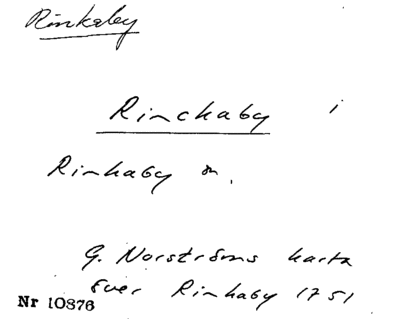 Rinkaby
Rinchaby i
Rinkaby sn.
G. Norströms karta
över Rinkaby 1751
Nr 10876